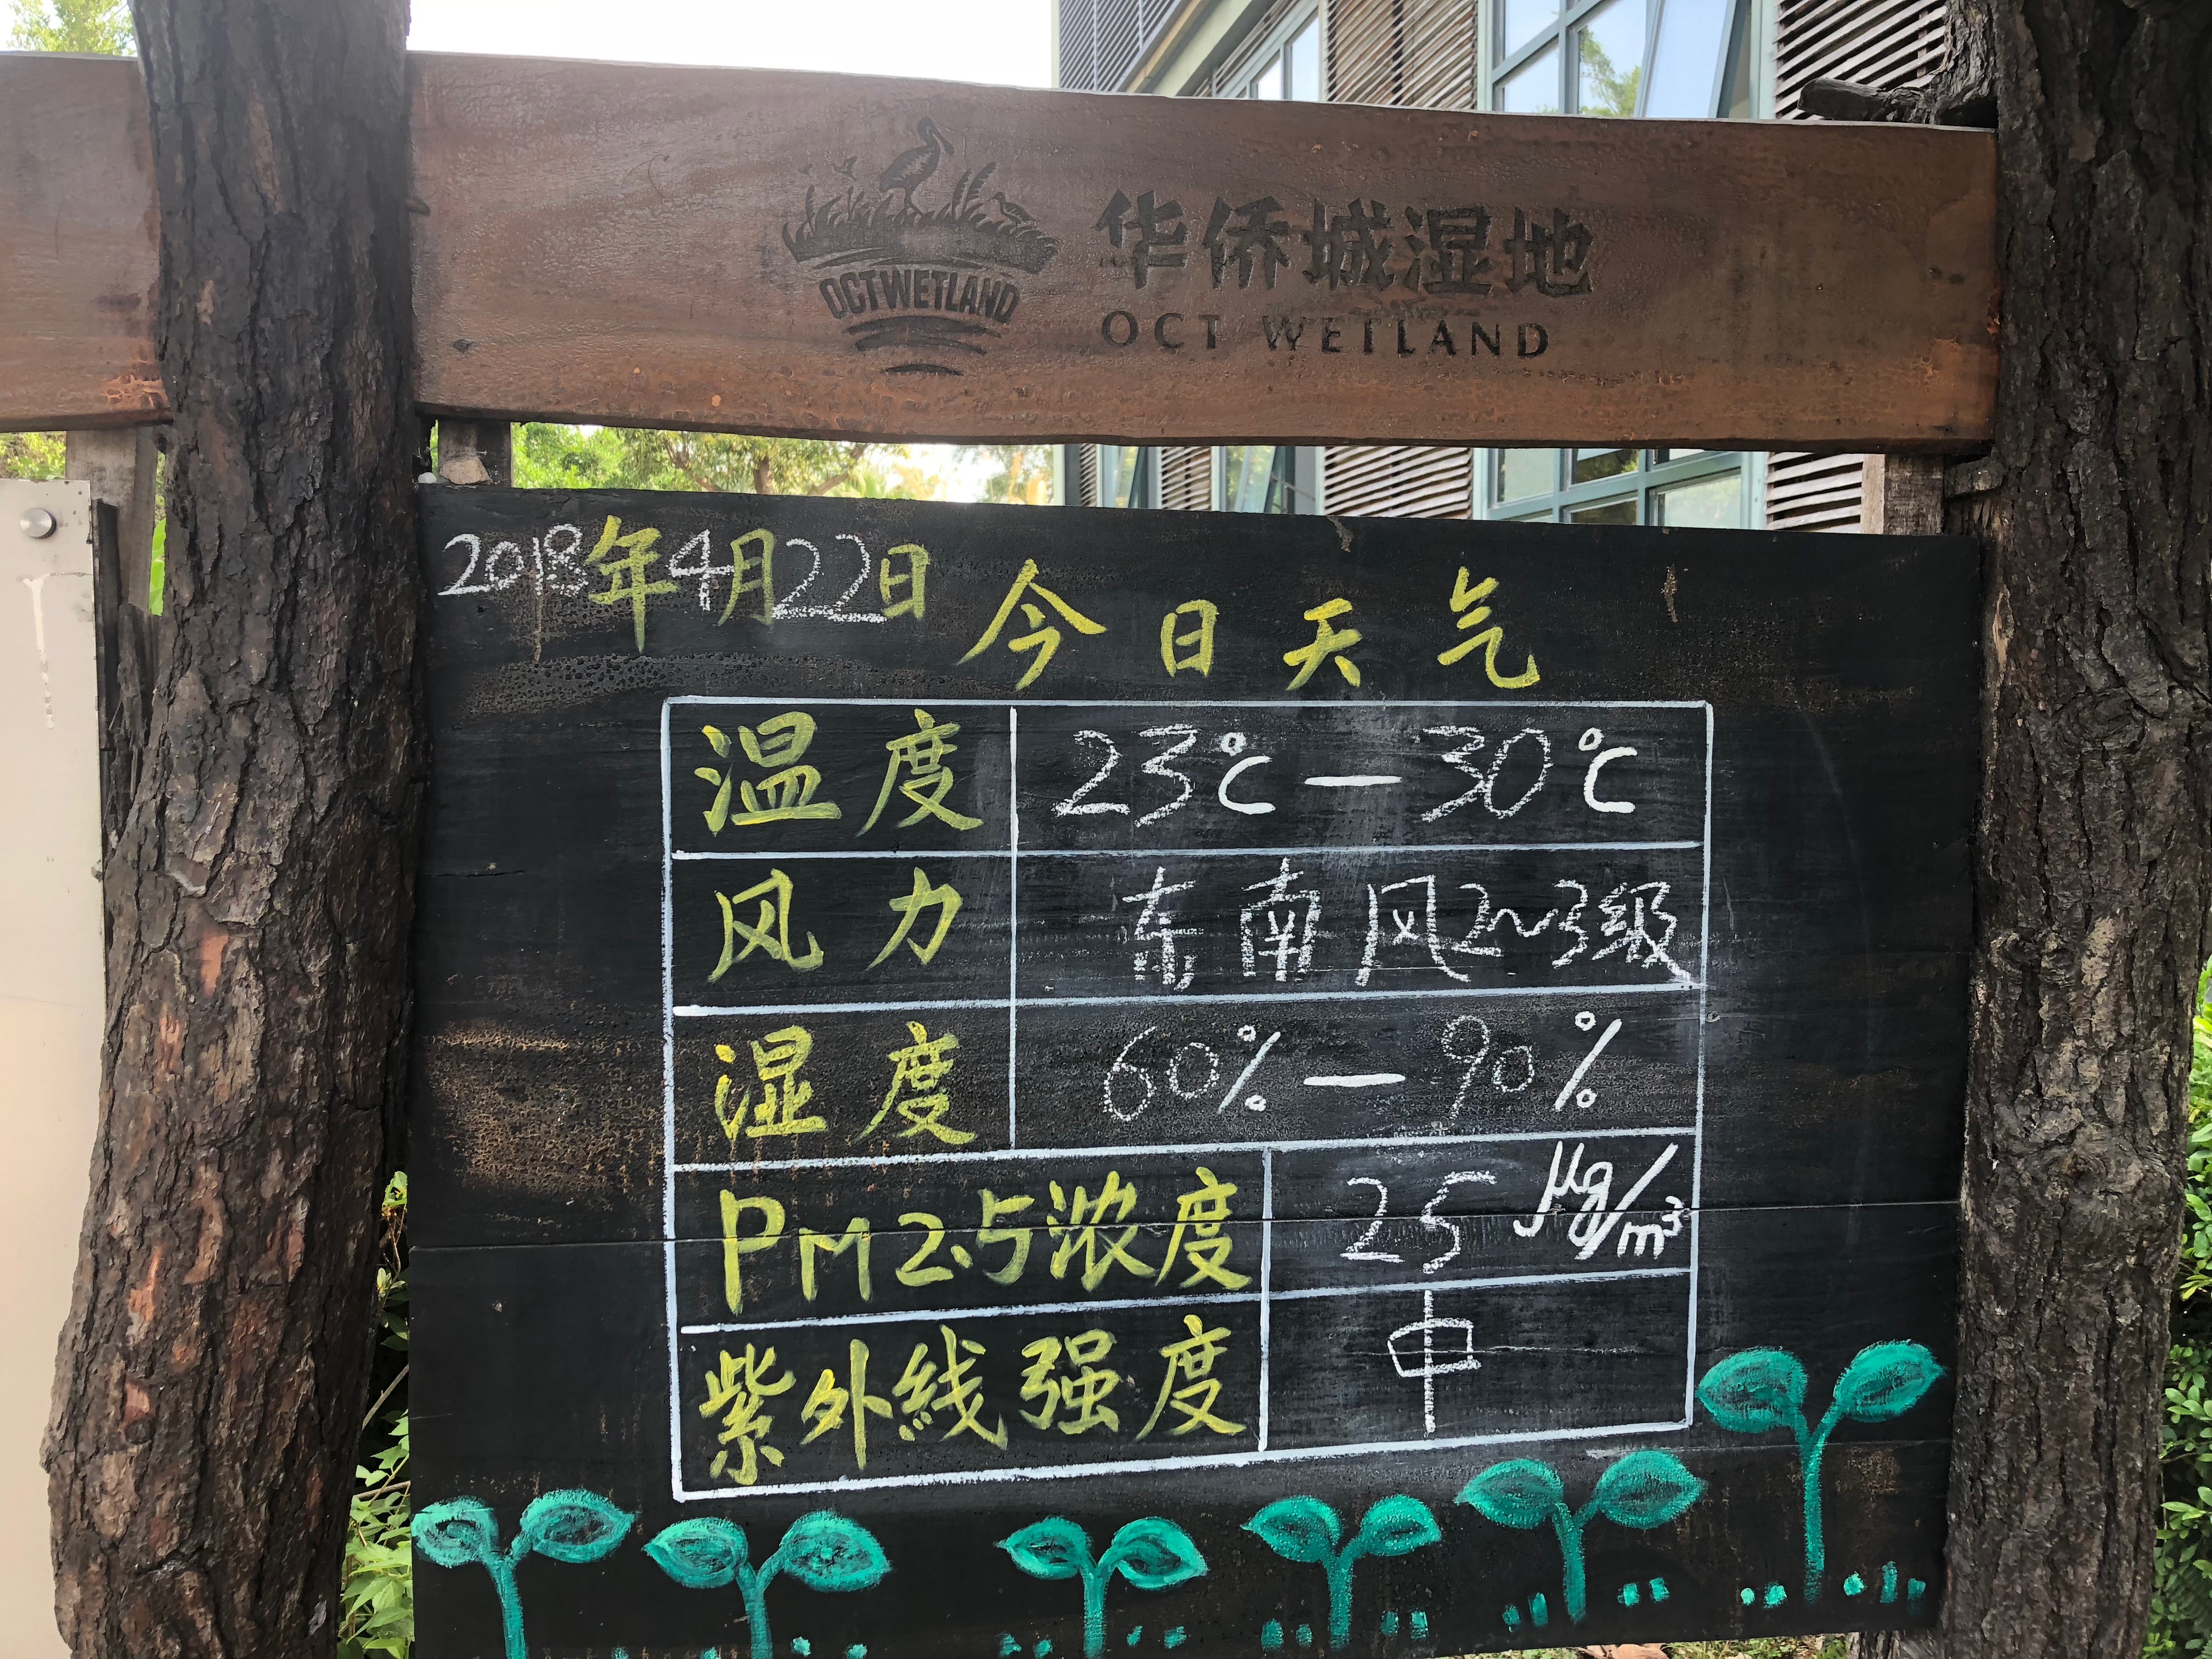 OCTWETLAND
华侨城湿地
OCT WETLAND
2018年4月22日
今日天气
温度 23℃—30℃
风力 东南风2~3级
湿度 60%—90%
PM2.5浓度 25 μg/m³
紫外線强度 中